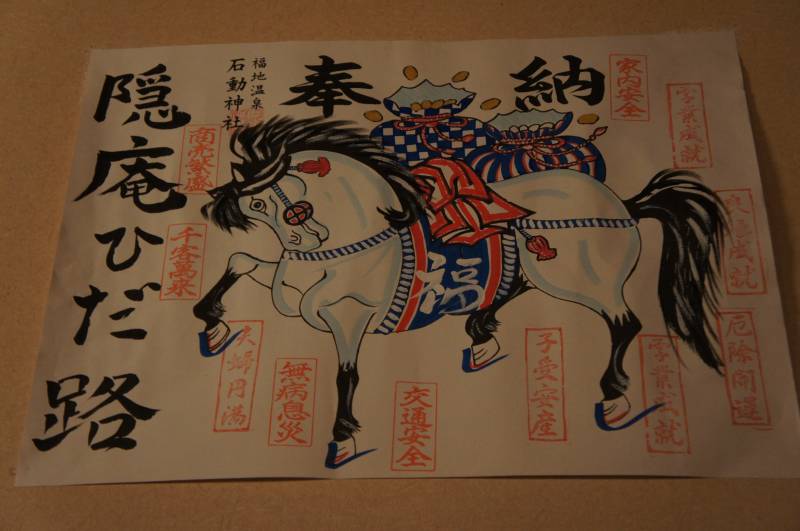 奉納
福地温泉
石動神社
隠庵ひだ路
家内安全
学業成就
良縁成就
厄除開運
学業成就
子愛安産
交通安全
無病息災
夫婦円満
千客萬来
商売繁盛
福